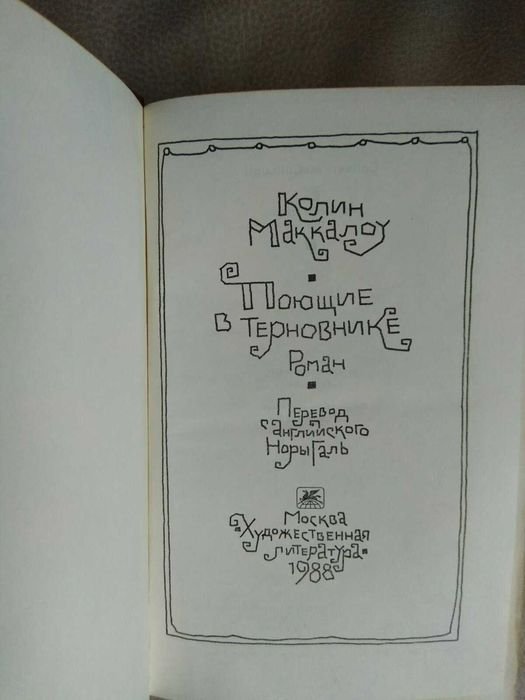 Колин
Маккалоу
Поющие
в терновнике
Роман
Перевод
с английского
Норы Галь
Москва
«Художественная
литература»
1988